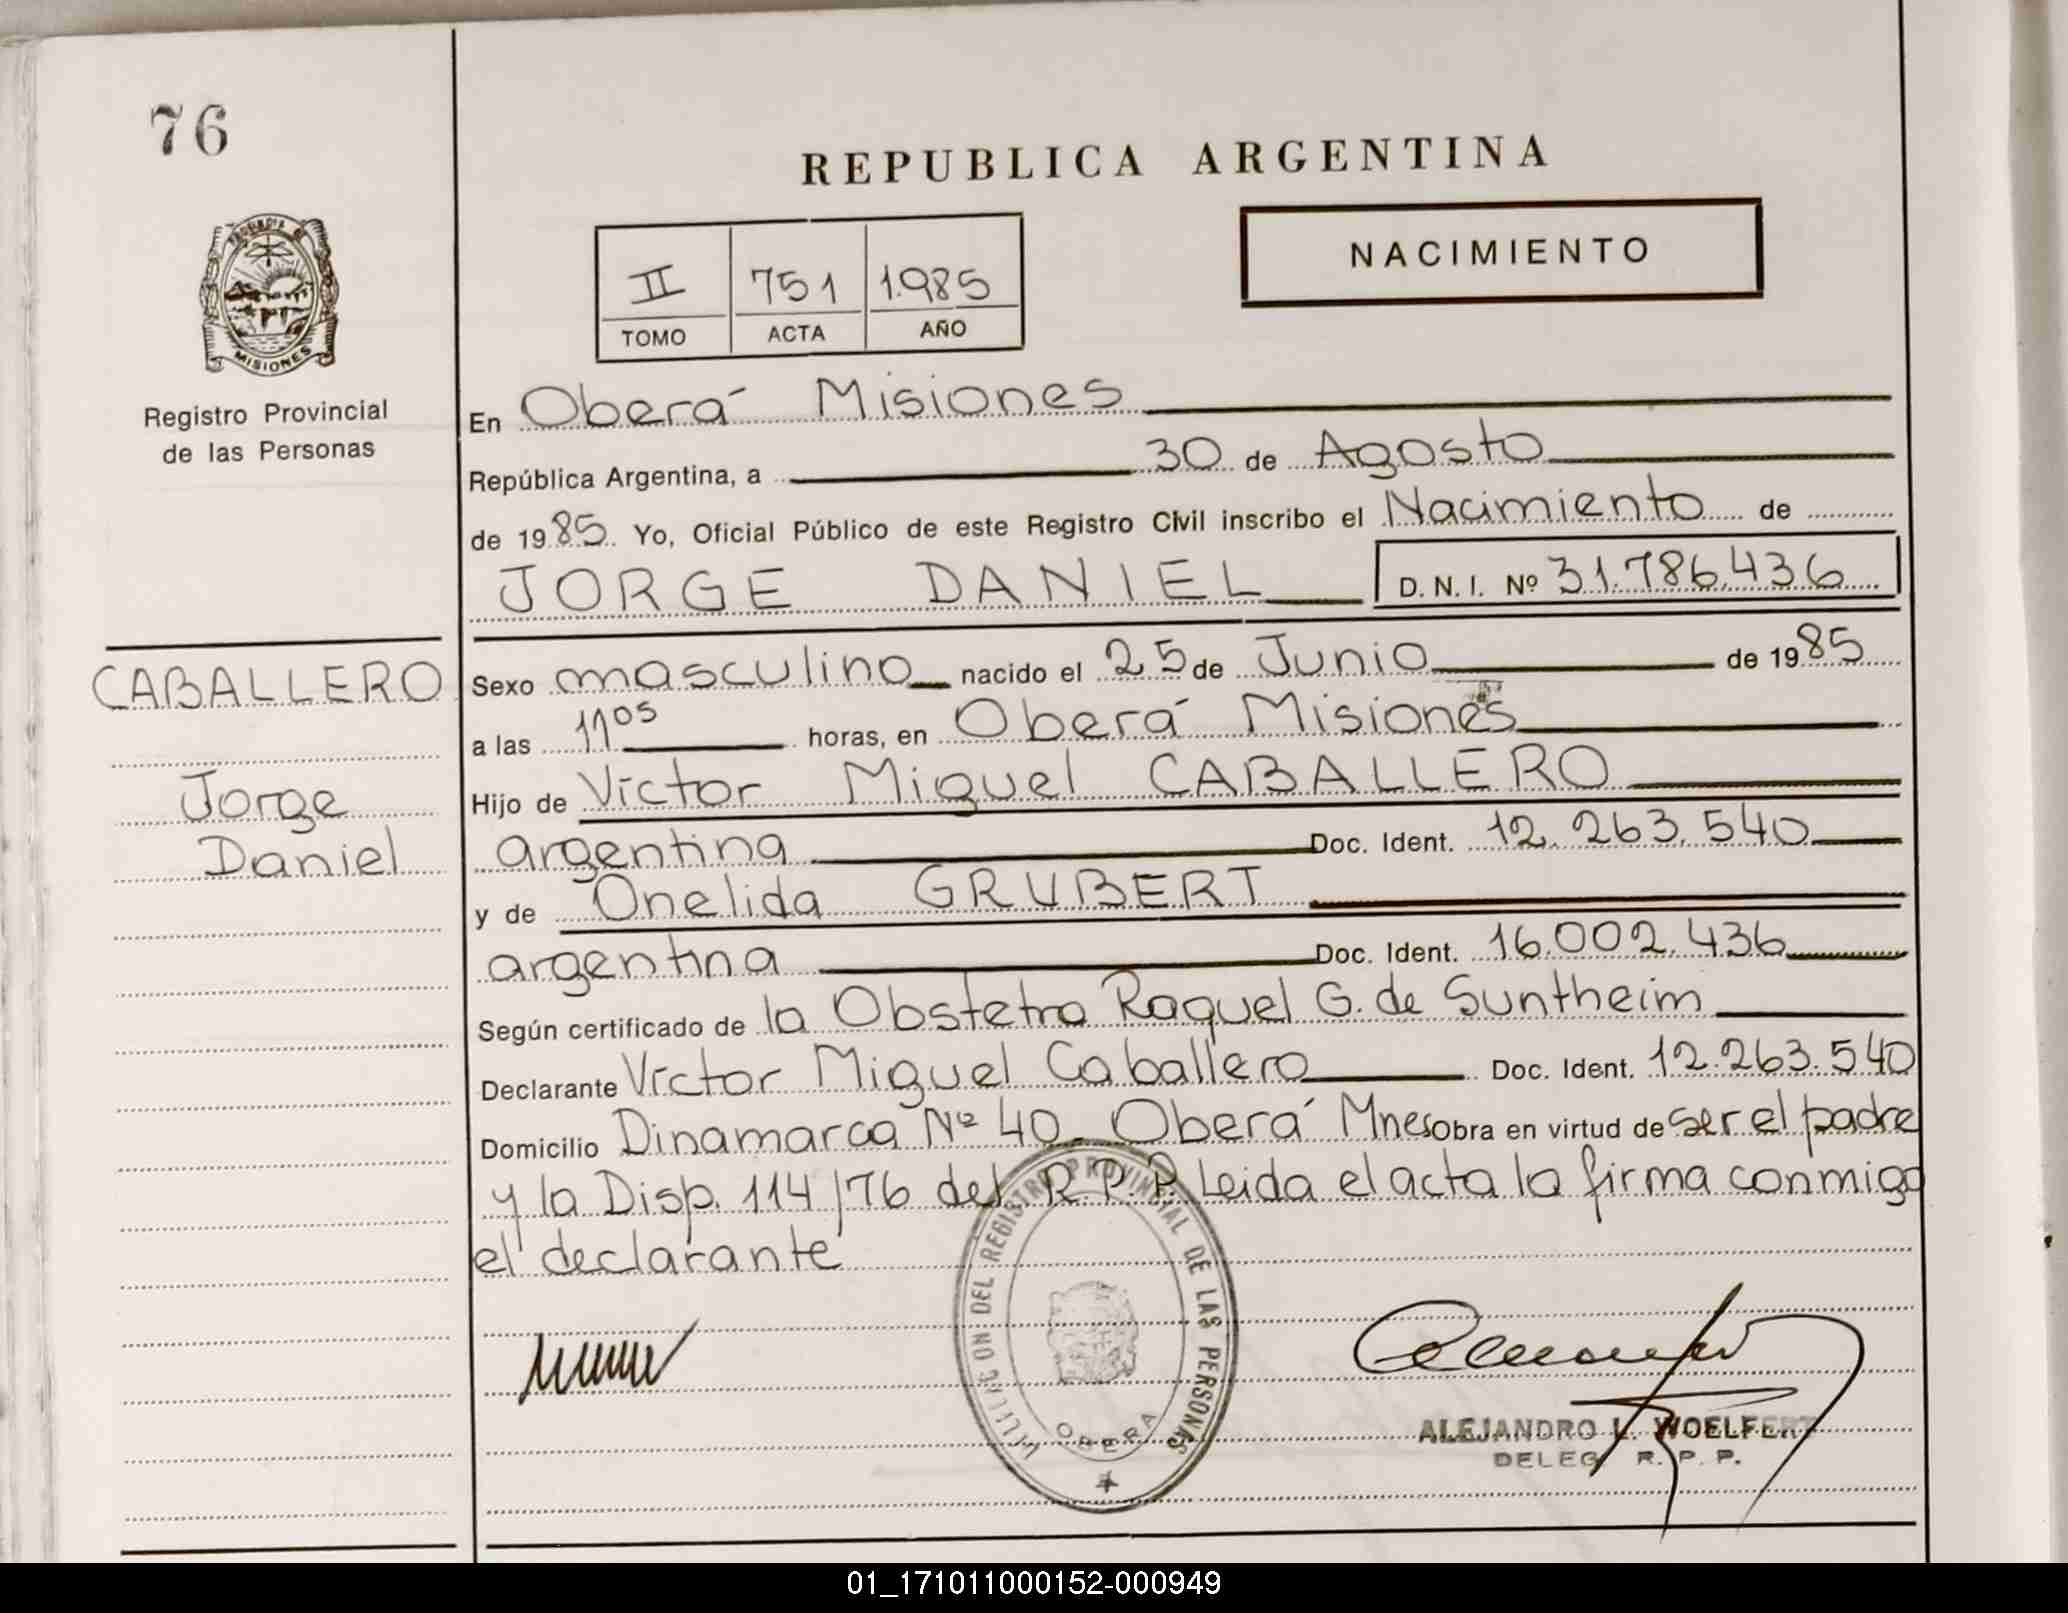 76
REPUBLICA ARGENTINA
NACIMIENTO
II 751 1.985
TOMO ACTA AÑO
PROVINCIA DE
MISIONES
Registro Provincial
de las Personas
En Oberá Misiones
República Argentina, a 30 de Agosto
de 1985. Yo, Oficial Público de este Registro Civil inscribo el Nacimiento de
JORGE DANIEL D.N.I. Nº 31.786.436
CABALLERO
Jorge
Daniel
Sexo masculino nacido el 25 de Junio de 1985
a las 11 05 horas, en Oberá Misiones
Hijo de Víctor Miguel CABALLERO
argentina Doc. Ident. 12.263.540
y de Onelida GRUBERT
argentina Doc. Ident. 16.002.436
Según certificado de la Obstetra Raquel G. de Suntheim
Declarante Víctor Miguel Caballero Doc. Ident. 12.263.540
Domicilio Dinamarca Nº 40 - Oberá Mnes Obra en virtud de ser el padre
y la Disp. 114/76 del R.P.P. Leida el acta la firma conmigo
el declarante
DEL REGISTRO PROVINCIAL DE LAS PERSONAS
OBERA
ALEJANDRO L. WOELFERT
DELEG. R. P. P.
01_171011000152-000949